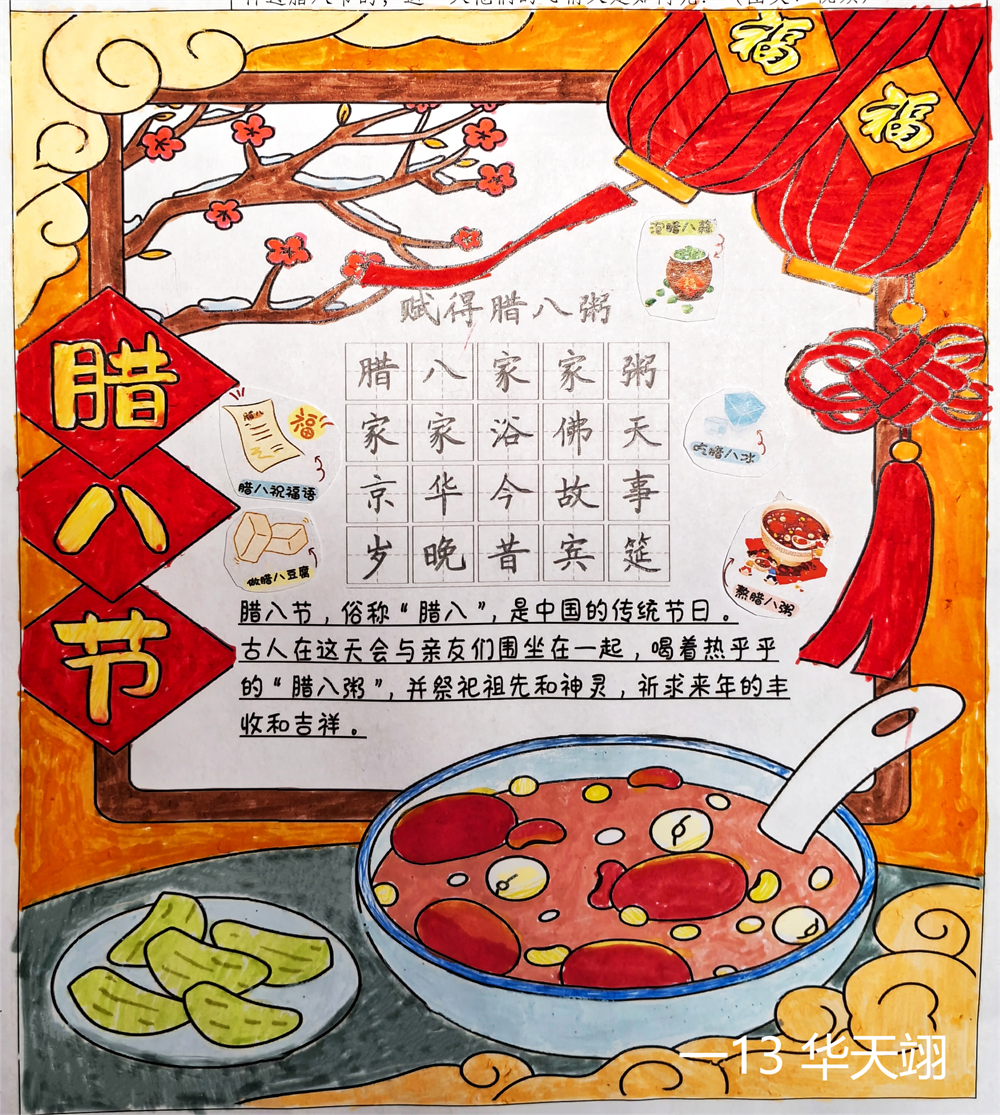 福
福
泡腊八蒜
赋得腊八粥
腊八家家粥
家家浴佛天
京华今故事
岁晚昔宾筵
腊八节
腊八
福
腊八祝福语
做腊八豆腐
吃腊八冰
熬腊八粥
腊八节，俗称“腊八”，是中国的传统节日。
古人在这天会与亲友们围坐在一起，喝着热乎乎
的“腊八粥”，并祭祀祖先和神灵，祈求来年的丰
收和吉祥。
一13 华天翊